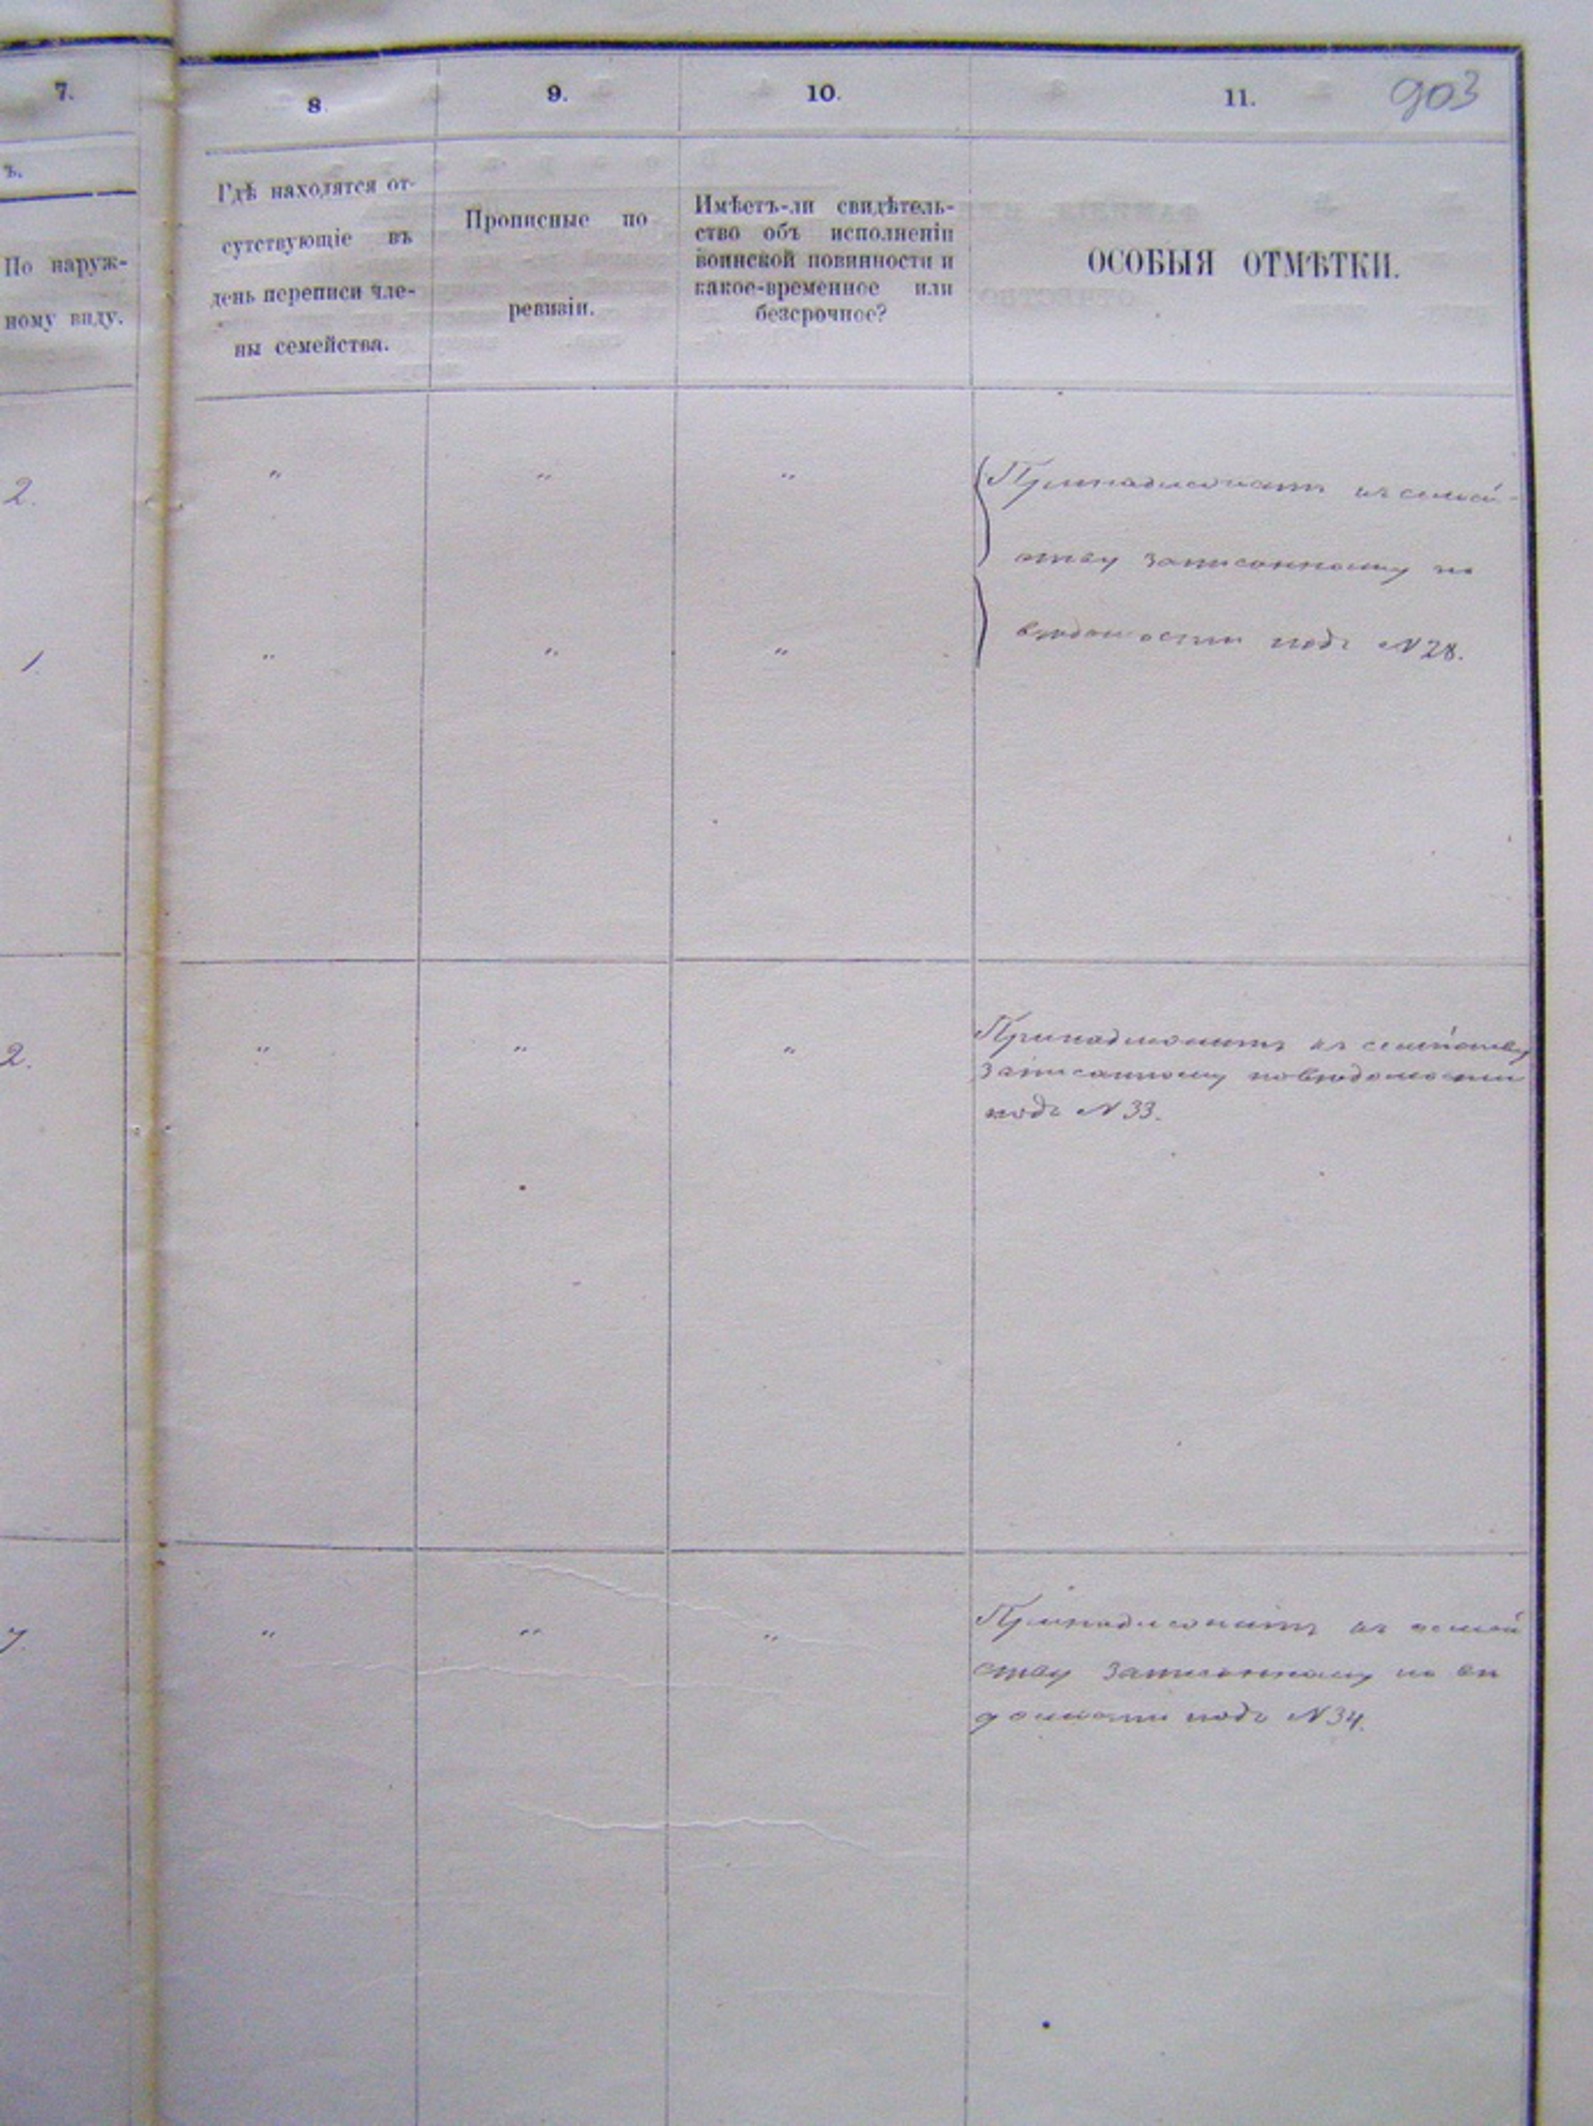 7.
8.
9.
10.
11.
903
ъ.
По наруж-
ному виду.
Гдѣ находятся от-
сутствующіе въ
день переписи чле-
ны семейства.
Прописные по
ревизіи.
Имѣетъ-ли свидѣтель-
ство объ исполненіи
воинской повинности и
какое-временное или
безсрочное?
ОСОБЫЯ ОТМѢТКИ.
2.
"
"
"
Принадлежатъ къ семей-
ству записанному по
вѣдомости подъ №28.
1.
"
"
"
2.
"
"
"
Принадлежитъ къ семейству
записанному по вѣдомости
подъ №33.
7.
"
"
"
Принадлежитъ къ семей
ству записанному по вѣ
домости подъ №34.